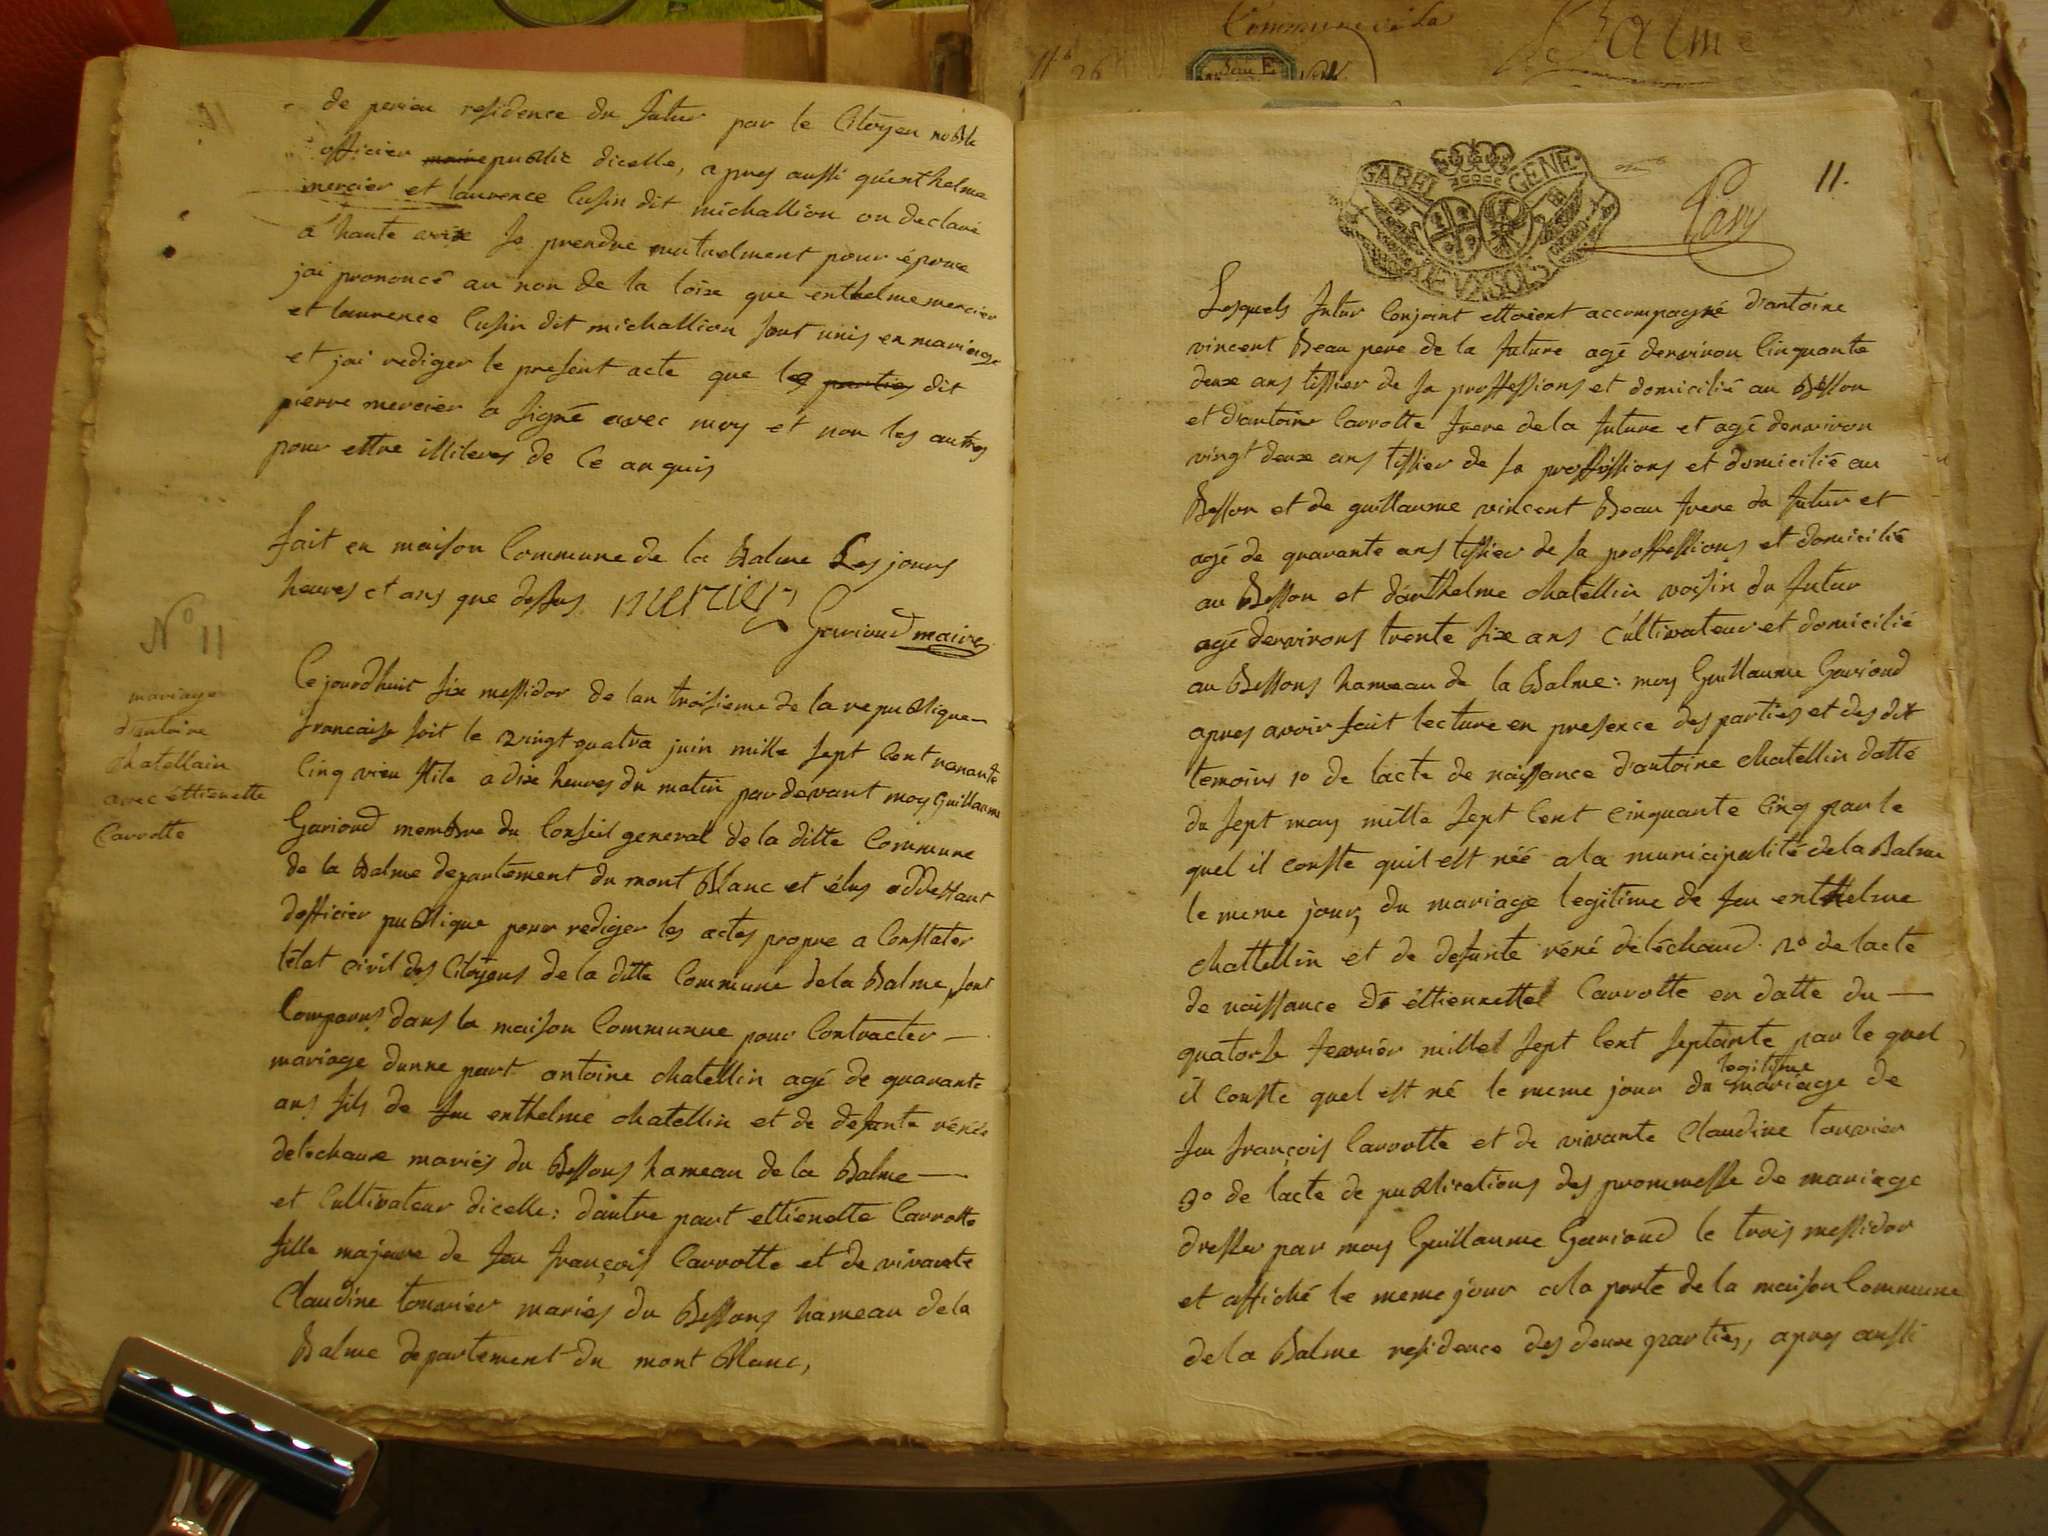 Commune de la
Balme
N° 26
Serie E
de perieu residence du futur par le Citoyen noble
officier maire public dicelle, apres aussi quenthelme
mercier et laurence Cusin dit michallion on declaré
a haute voix se prendre mutuelment pour épouse
jai prononcé au non de la loix que enthelme mercier
et laurence Cusin dit michallion sont unis en mariage
et jai rediger le present acte que les parties dit
pierre mercier a signé avec moy et non les autres
pour ettre illiteres de ce anquis
fait en maison Commune de la Balme Les jours
heures et ans que dessus. mercier
Gerioud maire
N° 11
mariage
d'antoine
chatellain
avec éttienette
Carrotte
Cejourdhuit six messidor de lan troisieme de la republique
francaise soit le vingt quatra juin mille sept Cent nonante
Cinq vieu stile a dix heures du matin pardevant moy Guillaume
Garioud membre du Conseil general de la ditte Commune
de la Balme departement du mont Blanc et élus
dofficier publique pour rediger les actes propre a Constater
létat civil des Citoyens de la ditte Commune dela Balme, sont
Comparus dans la maison Commune pour Contracter
mariage dunne part antoine chatellin agé de quarante
ans fils de feu enthelme chatellin et de defunte rénée
deléchaux mariés du Bessons hameau de la Balme
et Cultivateur dicelle: dautre part ettienette Carrotte
fille majeure de feu françois Carrotte et de vivante
Claudine touvier mariés du Bessons hameau dela
Balme departement du mont Blanc,
GABHI GENE
11.
Pavy
Lesquels futur Conjoint ettoient accompagné d'antoine
vincent Beau pere de la future agé denviron Cinquante
deux ans tissier de sa proffessions et domicilié au Besson
et d'antoine Carrotte frere dela future et agé denviron
vingt deux ans tissier de sa proffessions et domicilié au
Besson et de guillaume vincent Beau frere du futur et
agé de quarante ans tissier de sa proffessions et domicilié
au Besson et danthelme chatellin voisin du futur
agé denvirons trente six ans Cultivateur et domicilié
au Bessons hameau de la Balme: moy Guillaume Garioud
apres avoir fait lecture en presence des parties et des dit
temoins 1° de lacte de naissance d'antoine chatellin datté
du sept may mille sept Cent cinquante Cinq par le
quel il conste quil est née ala municipalité dela Balme
le meme jour, du mariage legitime de feu enthelme
chattellin et de defunte réné deléchaud. 2° de lacte
de naissance de éttiennette Carrotte en datte du
quatorse fevrier mille sept Cent septante par le quel
il conste quel est né le meme jour du legitime mariage de
feu françois Carrotte et de vivante Claudine touvier
3° de lacte de publications des prommesse de mariage
dresser par moy Guillaume Garioud le trois messidor
et affiché le meme jour ala porte de la maison Commune
dela Balme residence des deux parties, apres aussi